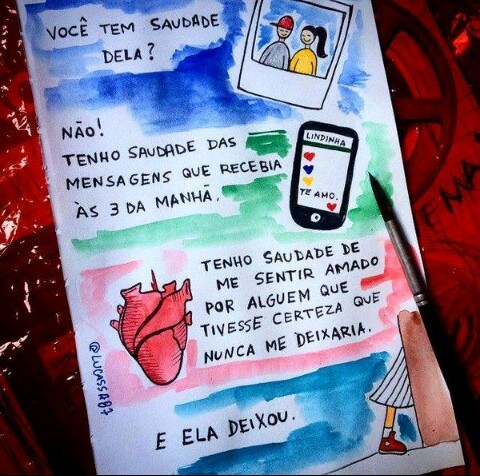 VOCÊ TEM SAUDADE
DELA?
NÃO!
TENHO SAUDADE DAS
MENSAGENS QUE RECEBIA
ÀS 3 DA MANHÃ.
LINDINHA
TE AMO.
TENHO SAUDADE DE
ME SENTIR AMADO
POR ALGUEM QUE
TIVESSE CERTEZA QUE
NUNCA ME DEIXARIA.
@LUCASSA87
E ELA DEIXOU.
EMA